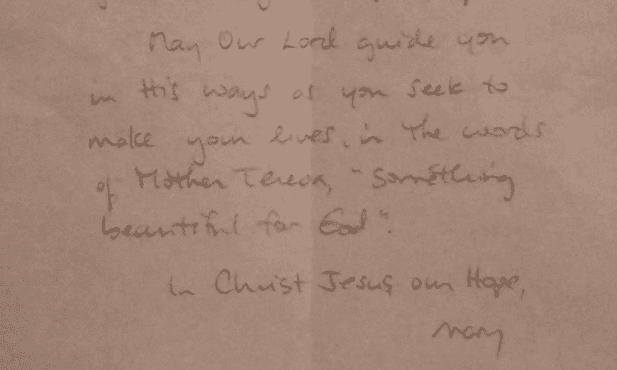 May Our Lord guide you
in His ways as you seek to
make your lives, in the words
of Mother Teresa, "Something
beautiful for God".
In Christ Jesus, our Hope,
Mary